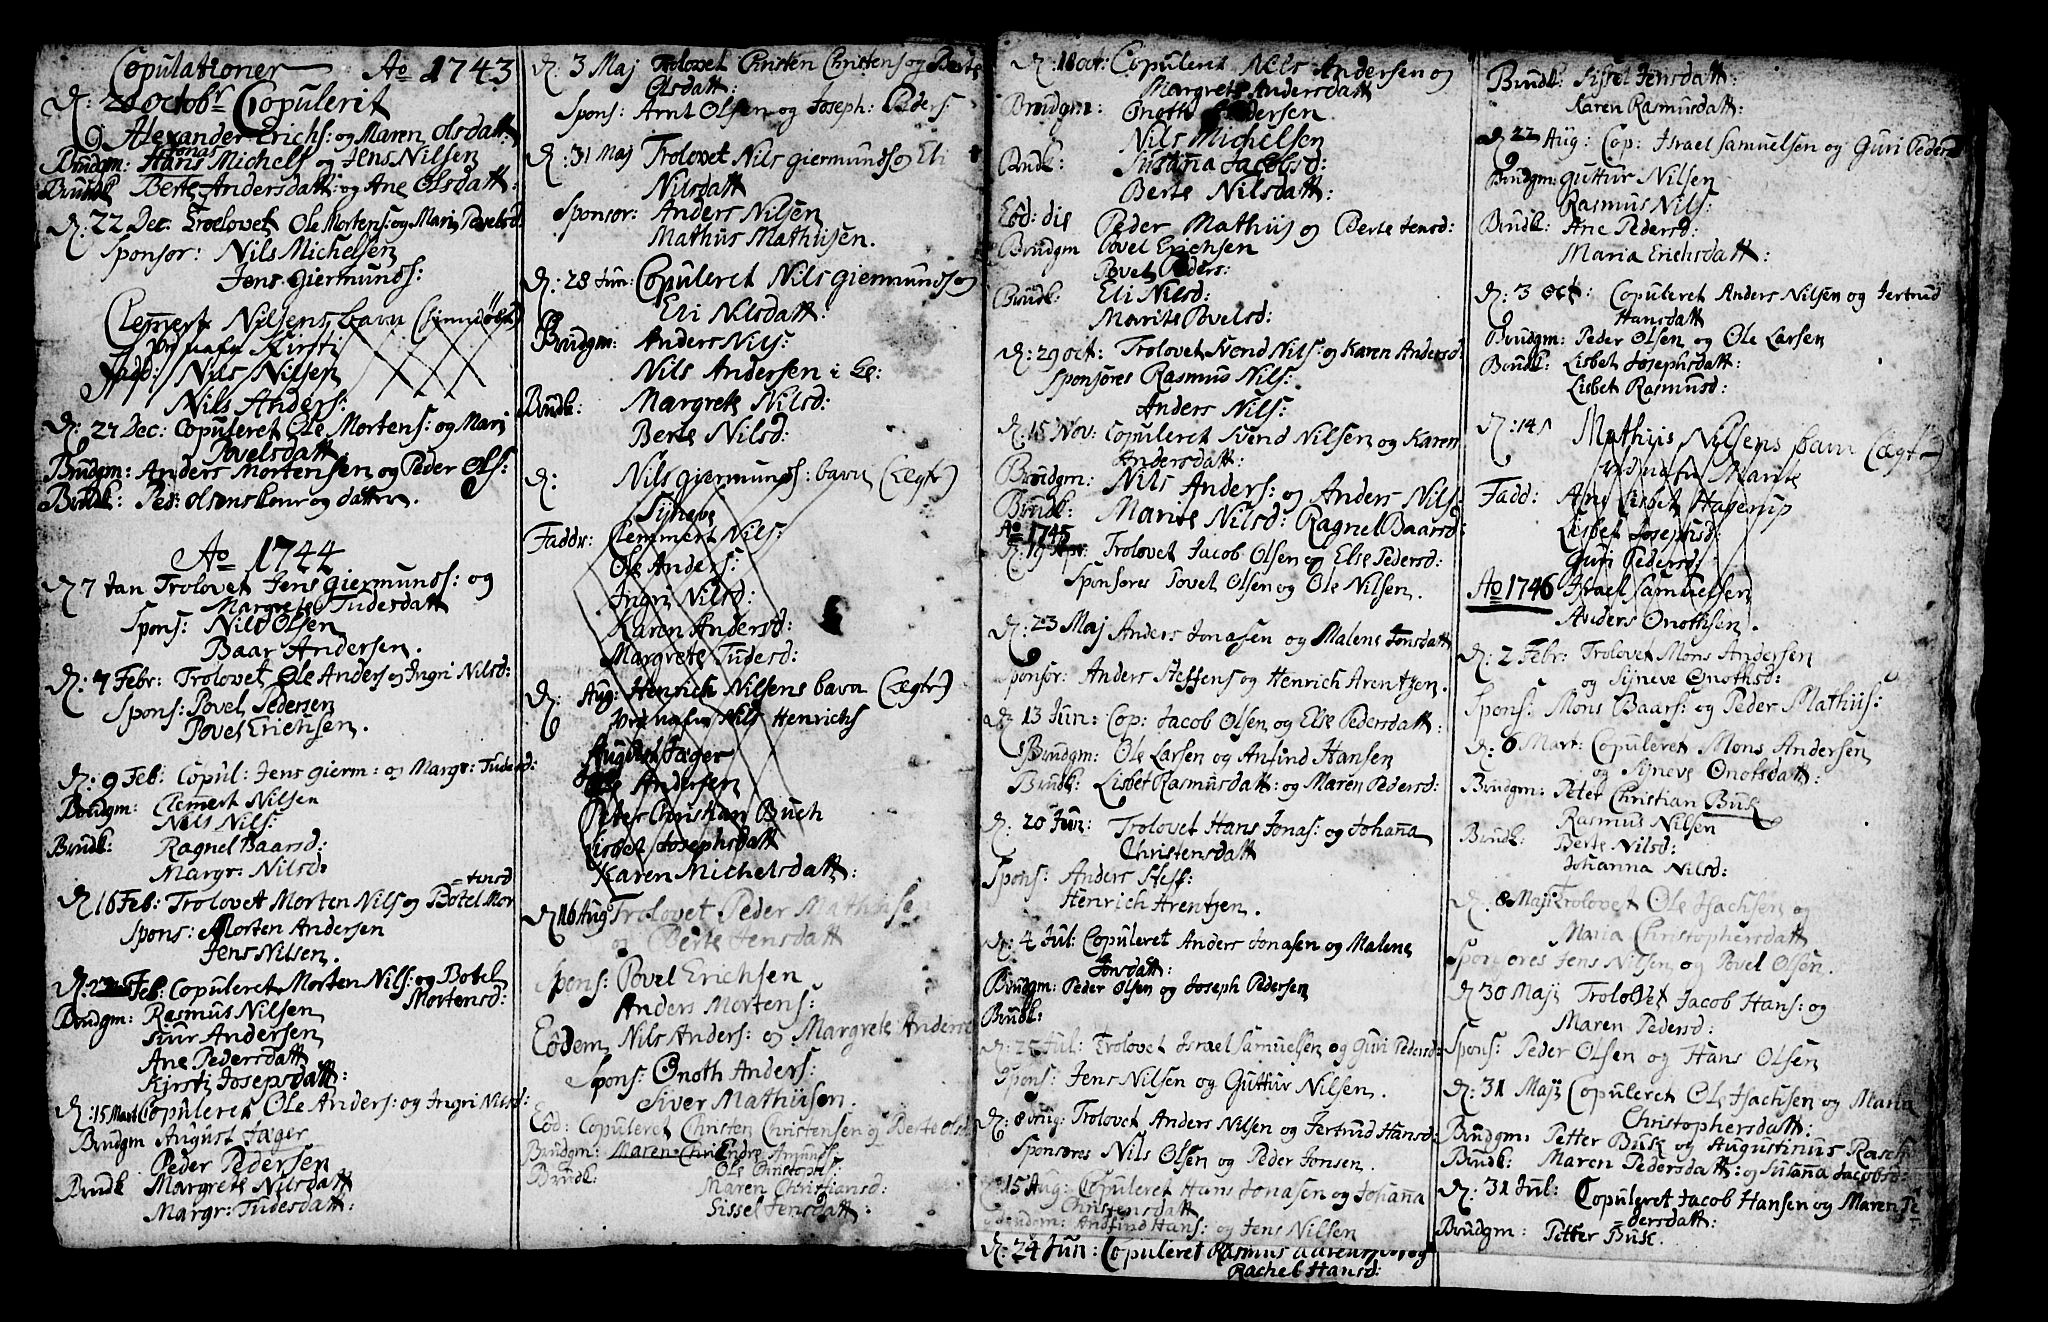 Copulationer Ao 1743
D: 20 Octobr Copulerit
Alexander Erichs: og Maren Olsdatt
Jonas
Brudgm: Hans Michels og Jens Nilsen
Brudk Berte Andersdatt: og Ane Olsdatt:
D. 22 Dec: Trolovet Ole Mortens: og Mari Povelsd:
Sponsor: Nils Michelsen
Jens Giermunds:
Clemert Nilsens barn
ved nafn Kirsti
Fadd: Nils Nilsen
Nils Anders:
D: 27 Dec: Copuleret Ole Mortens: og Mari
Povelsdatt
Brudgm: Anders Mortensen og Peder Ols:
Brudk: Ped: Olsens kone og datter.
Ao 1744
D 7 Jan Trolovet Jens Giermunds: og
Margrete Tudesdatt
Spons: Nils Olsen
Baar Andersen.
D. 7 Febr: Trolovet Ole Anders og Ingri Nilsd:
Spons: Povel Pedersen
Povel Erichsen.
D: 9 Feb: Copul: Jens Gierm: og Margr: Tudesd:
Brudgm: Clemert Nilsen
Nils Nils:
Brudk: Ragnel Baarsd:
Margr: Nilsd:
D. 16 Feb: Trolovet Morten Nils og Botel Mor
=tensd
Spons: Morten Andersen
Jens Nilsen.
D: 22 Feb: Copuleret Morten Nils: og Botel
Mortensd:
Brudgm: Rasmus Nilsen
Tuur Andersen
Ane Pedersdatt
Kirsti Josepsdatt:
D: 15 Mart Copuleret Ole Anders: og Ingri Nilsd:
Brudgm August Jæger
Peder Pedersen
Brudk Margrete Nilsdatt
Margr: Tudesdatt:
D. 3 Maj Trolovet Christen Christens og Berte
Olsdatt:
Spons: Arnt Olsen og Joseph: Peders
D. 31 Maj Trolovet Nils Giermunds og Eli
Nilsdatt
Sponsor: Anders Nilsen
Mathius Mathisen.
D. 28 Jun: Copuleret Nils Giermunds og
Eli Nilsdatt:
Brudgm: Anders Nils:
Nils Andersen i
Brudk: Margrete Nilsd:
Berte Nilsd:
D: Nils Giermunds: barn (Ægte)
Sijneve
Faddr: Clemmert Nils:
Ole Anders:
Ingri Nilsd:
Karen Andersd:
Margrete Tudesd:
D: Aug: Henrich Nilsens barn (Ægte)
ved nafn Nils Henrichs
August Jæger
Andersen
Peter Christian Buch
Lisbet Josephsdatt
Karen Michelsdatt:
D 16 Aug Trolovet Peder Mathisen
og Berte Jensdatt
Spons: Povel Erichsen
Anders Mortens:
Eodem Nils Anders: og Margrete Andersd
Spons: Onoth Anders:
Siver Mathiisen.
Eod: Copuleret Christen Christensen og Berte Olsd
Brudgm: Maren Chri Endre Amunds:
Ole Christophs:
Brudk: Maren Christiansd:
Sissel Jensdatt:
D: 18 Oct: Copulerit Nils Andersen og
Margrete Andersdatt
Brudgm: Onoth Pedersen
Nils Michelsen
Brudk: Susanna Jacobsd:
Berte Nilsdatt:
Eod: die Peder Mathis og Berte Jensd:
Brudgm Povel Erichsen
Povel Peders:
Brudk: Eli Nilsd:
Marite Povelsd:
D: 29 Oct: Trolovet Svend Nils: og Karen Andersd:
Sponsores Rasmus Nils:
Anders Nils:
D. 15 Nov: Copuleret Svend Nilsen og Karen
Andersdatt:
Brudgm: Nils Anders: og Anders Nils:
Brudk: Marite Nilsd: Ragnel Baarsd:
Ao 1745
D. 19 Apr: Trolovet Jacob Olsen og Else Pedersd:
Sponsores Povel Olsen og Ole Nilsen.
D: 23 Maj Anders Jonasen og Malene Jonsdatt
Sponsor: Anders Steffens og Henrich Arentzen.
D 13 Jun: Cop: Jacob Olsen og Else Pedersdatt:
Brudgm: Ole Larsen og Anfind Hansen
Brudk: Lisbet Rasmusdatt: og Maren Pedersd:
D. 20 Jun: Trolovet Hans Jonas: og Johanna
Christensdatt
Spons: Anders Steff:
Henrich Arentzen.
D: 4 Jul: Copuleret Anders Jonasen og Malene
Jonsdatt:
Brudgm: Peder Olsen og Joseph Pedersen
Brudk:
D: 25 Jul: Trolovet Israel Samuelsen og Guri Pedersd:
Spons: Jens Nilsen og Guttur Nilsen.
D: 8 Aug: Trolovet Anders Nilsen og Jertrud Hansd
Sponsores Nils Olsen og Peder Jonsen.
D 15 Aug: Copuleret Hans Jonasen og Johanna
Christensdatt
Brudgm: Andfind Hans: og Jens Nilsen
D: 24 Jun: Copuleret Rasmus og
Rachel Hansd:
Brudk: Sissel Jensdatt:
Karen Rasmusdatt:
D 22 Aug: Cop: Israel Samuelsen og Guri Pedersd
Brudgm: Guttur Nilsen
Rasmus Nils:
Brudk: Ane Pedersd:
Maria Erichsdatt:
D: 3 Oct: Copuleret Anders Nilsen og Jertrud
Hansdatt
Brudgm: Peder Olsen og Ole Larsen
Brudk: Lisbet Josephsdatt:
Lisbet Rasmusd:
D: 14 Mathiis Nilsens barn (Ægte
ved nafn Marite
Fadd: Ane Lisbet Hagerup
Lisbet Josephsd:
Guri Pedersd:
Ao 1746 Israel Samuelsen
Anders Onothsen.
D: 2 Febr: Trolovet Mons Andersen
og Sijneve Onothsd:
Spons: Mons Baars: og Peder Mathiis:
D: 6 Mart: Copuleret Mons Andersen
og Sijneve Onotsdatt:
Brudgm: Peter Christian Busk
Rasmus Nilsen
Brudk: Berte Nilsd:
Johanna Nilsd:
D. 8 Maji Trolovet Ole Isachsen og
Maria Christophersdatt
Sponsores Jens Nilsen og Povel Olsen.
D. 30 Maji Trolovet Jacob Hans: og
Maren Pedersd:
Spons: Peder Olsen og Hans Olsen
D: 31 Maji Copuleret Ole Isachsen og Maria
Christophersdatt:
Brudgm: Petter Busk og Augustinus Rasch
Brudk: Maren Pedersdatt: og Susanna Jacobsd:
D: 31 Jul: Copuleret Jacob Hansen og Maren Pe
=dersdatt:
Brudgm: Petter Busk.